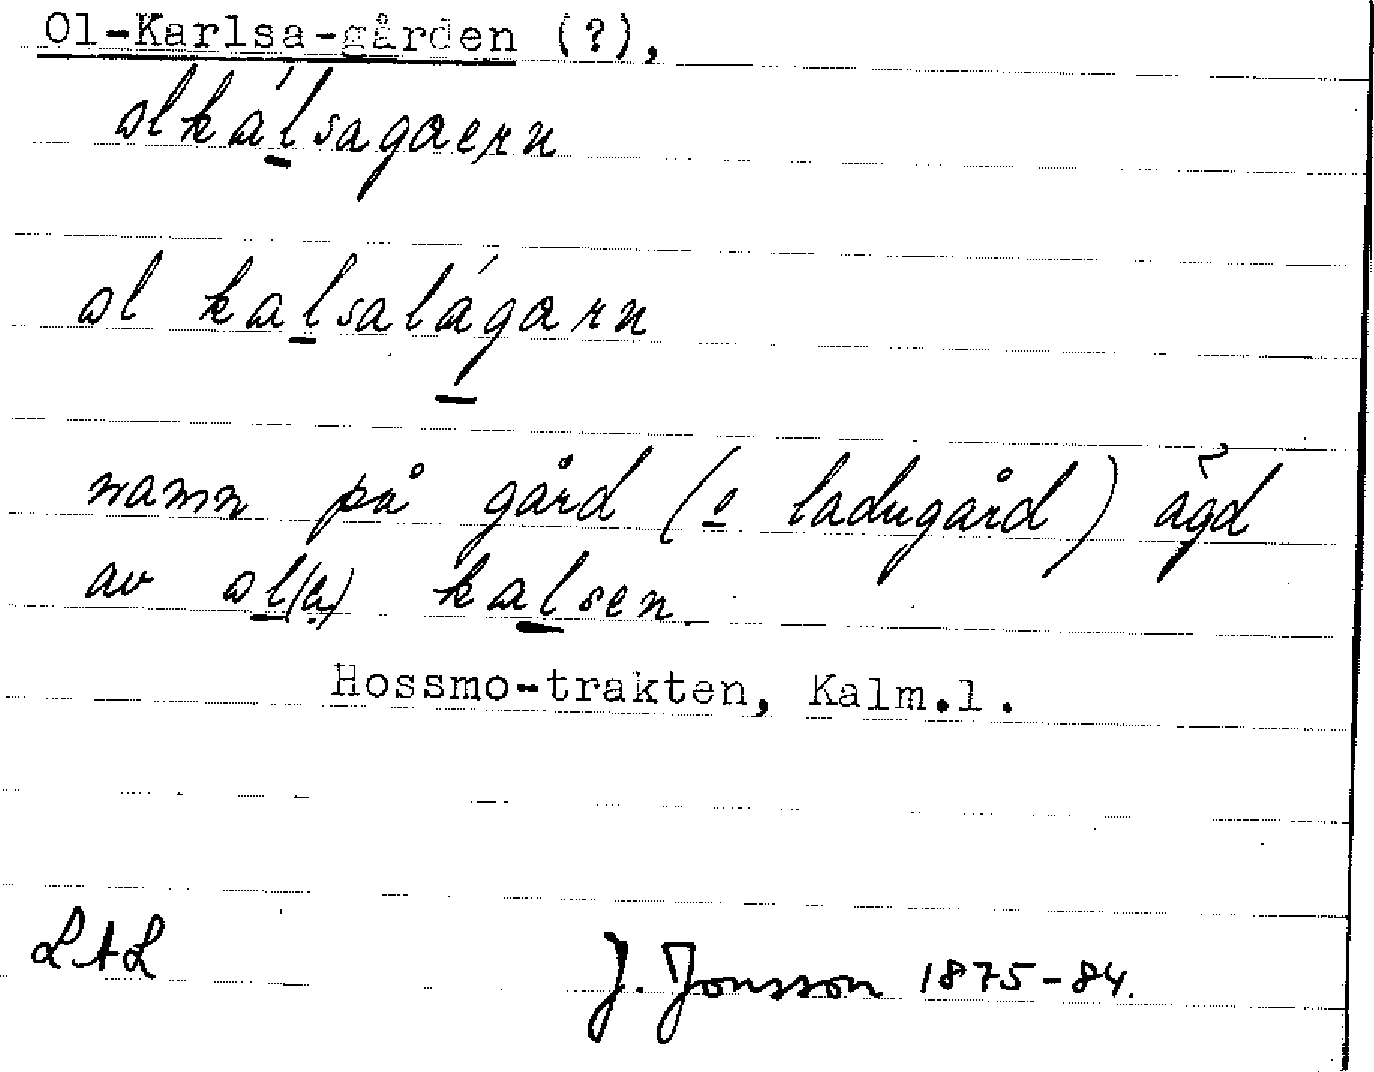 Ol-Karlsa-gården (?),
alkálsagaern
al kalsalágarn
namn på gård (o ladugård) ägd
av al(a) kalsen.
Hossmo-trakten, Kalm.l.
LAL J. Jonsson 1875-84.